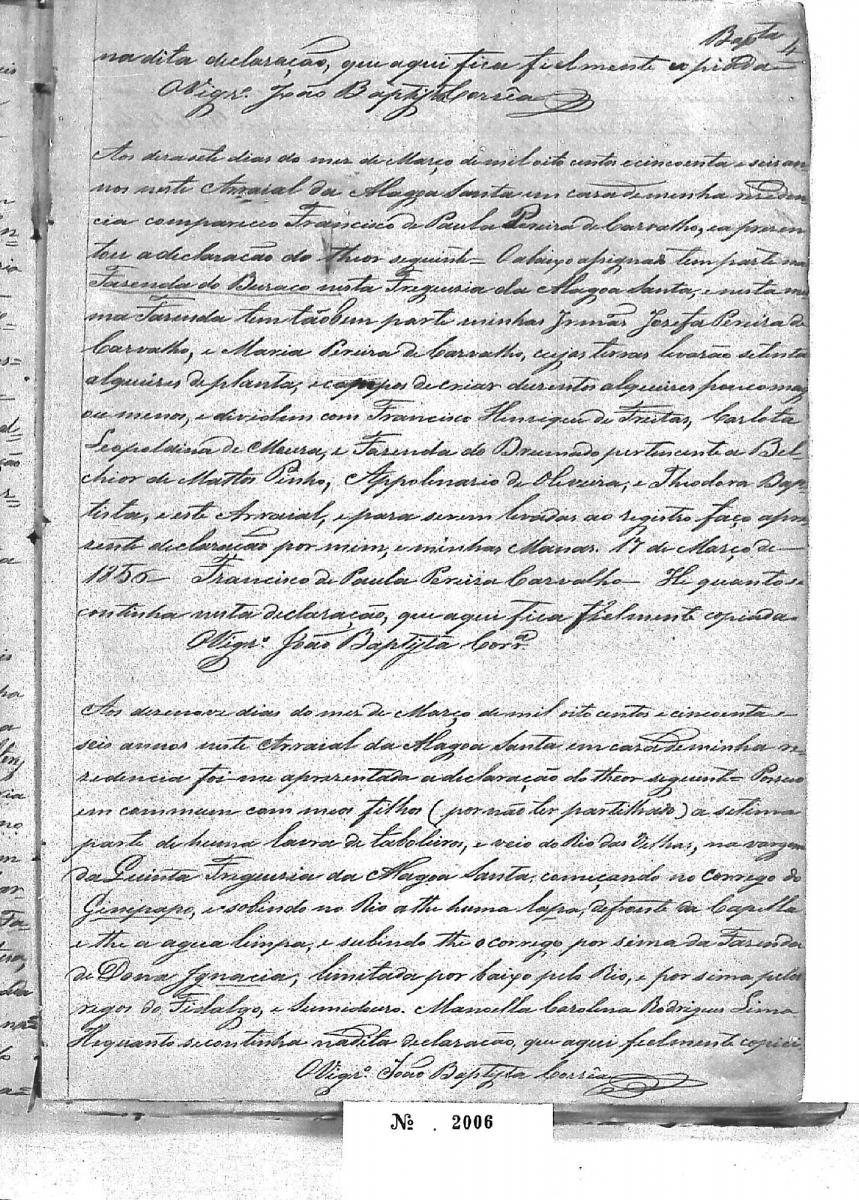 Bapta 4
na dita declaração, que aqui fica fielmente copiada
O Vigr.o João Baptista Corrêa
Aos desasete dias do mez de Março de mil oito centos e cincoenta e seis an
nos neste Arraial da Alagoa Santa em casa de minha residen
cia compareceo Francisco de Paula Pereira de Carvalho, e apresen
tou a declaração do theor seguinte = O abaixo assignar tem parte na
Fazenda do Buraco nesta Freguesia da Alagoa Santa, e nesta mes
ma Fazenda tem tãobem parte minhas Irmãs Josefa Pereira de
Carvalho, e Maria Pereira de Carvalho, cujas terras levarão setenta
alqueires de planta, e campos de criar duzentos alqueires pouco mas
ou menos, e dividem com Francisco Henriques de Freitas, Carlota
Leopoldina de Moura, e Fazenda do Brumado pertencente a Bel
chior de Mattos Pinho, Appolinario de Oliveira, e Theodora Bap
tista, e este Arraial, e para serem levadas ao registro faço apre
zente declaração por mim, e minhas Manas. 17 de Março de
1856 Francisco de Paula Pereira Carvalho He quanto se
continha nesta declaração, que aqui fica fielmente copiada
O Vigr.o João Baptista Corr.a
Aos desenove dias do mez de Março de mil oito centos e cincoenta e
seis annos neste Arraial da Alagoa Santa em casa de minha re
zedencia foi-me apresentada a declaração do theor seguinte = Possuo
em commum com meos filhos (por não ter partilhado) a setima
parte de huma lavra de taboleiros, e veio do Rio das Velhas, na vargem
da Quinta Freguesia da Alagoa Santa, começando no corrego do
Genipapo, e sobindo no Rio athe huma lapa, defronte da Capella
e the a agua limpa, e subindo the o corrego, por sima da Fazenda
de Dona Ignacia, limitada por baixo pelo Rio, e por sima pelos
regos do Fidalgo, e Sumidouro. Manoella Carolina Rodrigues Lima
He quanto se continha na dita declaração, que aqui fielmente copiei.
O Vigr.o João Baptista Corrêa
№ 2006